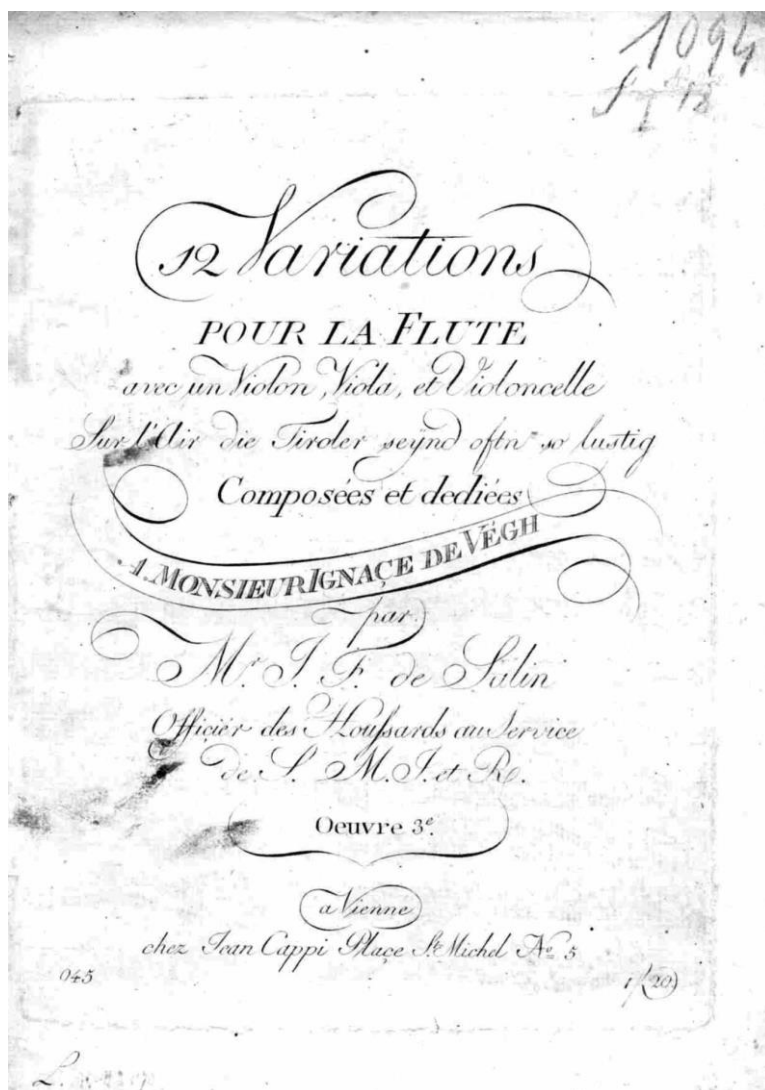 1094
I 18
12 Variations
POUR LA FLUTE
avec un Violon, Viola, et Violoncelle
Sur l'Air die Tiroler seÿnd oftn so lustig
Composées et dediées
A. MONSIEUR IGNAÇE DE VÉGH
par
Mr. J. F. de Salin
Officiér des Houssards au Service
de S. M. I. et R.
Oeuvre 3e.
a Vienne
chez Jean Cappi Plaçe St. Michel No. 5
045
1/(20)
L.